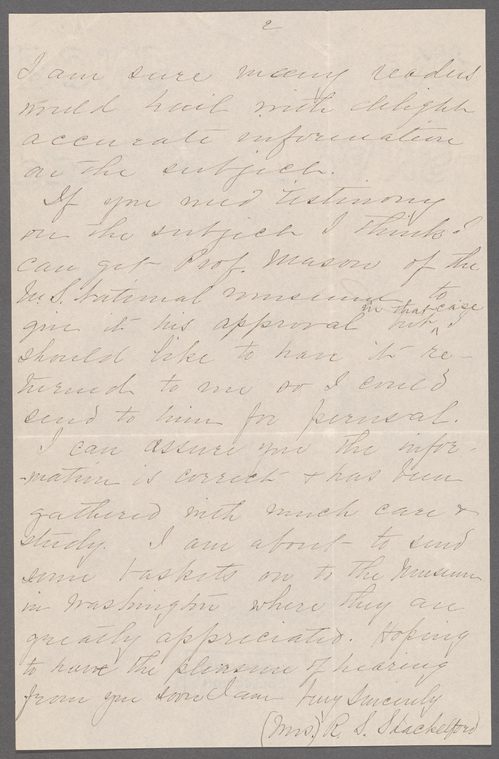 2
I am sure many readers
would hail with delight
accurate information
on the subject.
If you need testimony
on the subject I think I
can get Prof. Mason of the
U. S. National Museum to
give it his approval but
in that case I
should like to have it re-
turned to me so I could
send to him for perusal.
I can assure you the infor-
-mation is correct & has been
gathered with much care &
study. I am about to send
some baskets on to the Museum
in Washington where they are
greatly appreciated. Hoping
to have the pleasure of hearing
from you soon I am Very Sincerely
(Mrs.) R. S. Shackelford